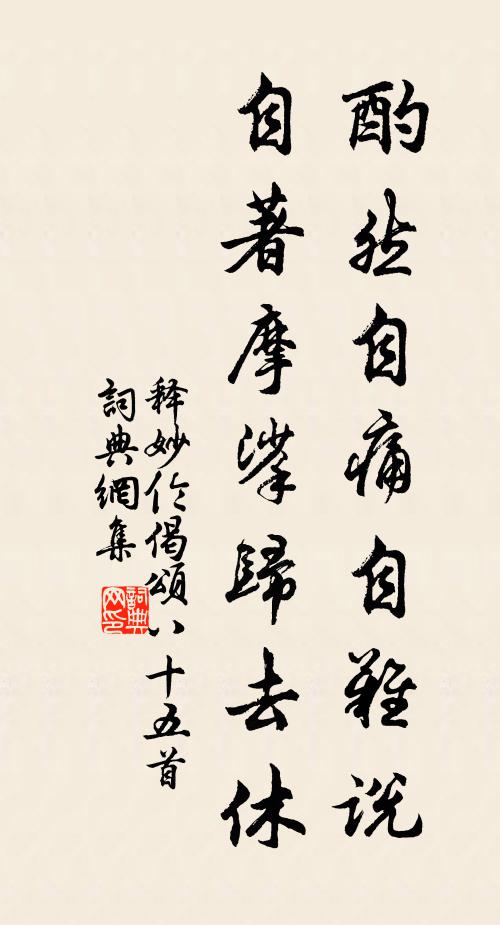 酌然自痛自難説
自著摩挲歸去休
释妙伦偈頌八十五首
詞典網集
詞典
网印